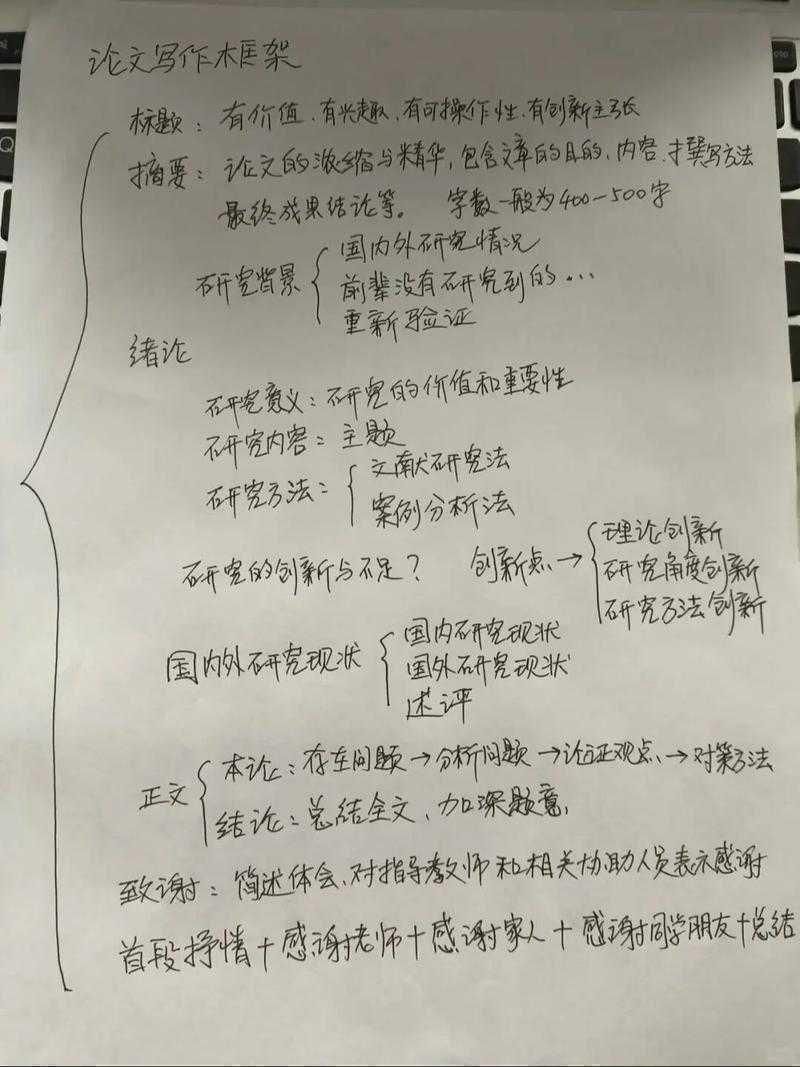 论文写作框架
标题：有价值、有兴趣、有可操作性、有创新主张
摘要：论文的浓缩与精华，包含文章的目的、内容、扌撰写方法
最终成果结论等。 字数一般为400-500字
研究背景
国内外研究情况
前辈没有研究到的...
重新验证
绪论
研究意义：研究的价值和重要性
研究内容：主题
研究方法：
文献研究法
案例分析法
研究的创新与不足？ 创新点→
理论创新
研究角度创新
研究方法创新
国内外研究现状
国内研究现状
国外研究现状
述评
正文
本论：存在问题→分析问题→论证观点→对策方法
结论：总结全文、加深题意
致谢：简述体会、对指导教师和相关协助人员表示感谢
首段抒情+感谢老师+感谢家人+感谢同学朋友+总结
Q